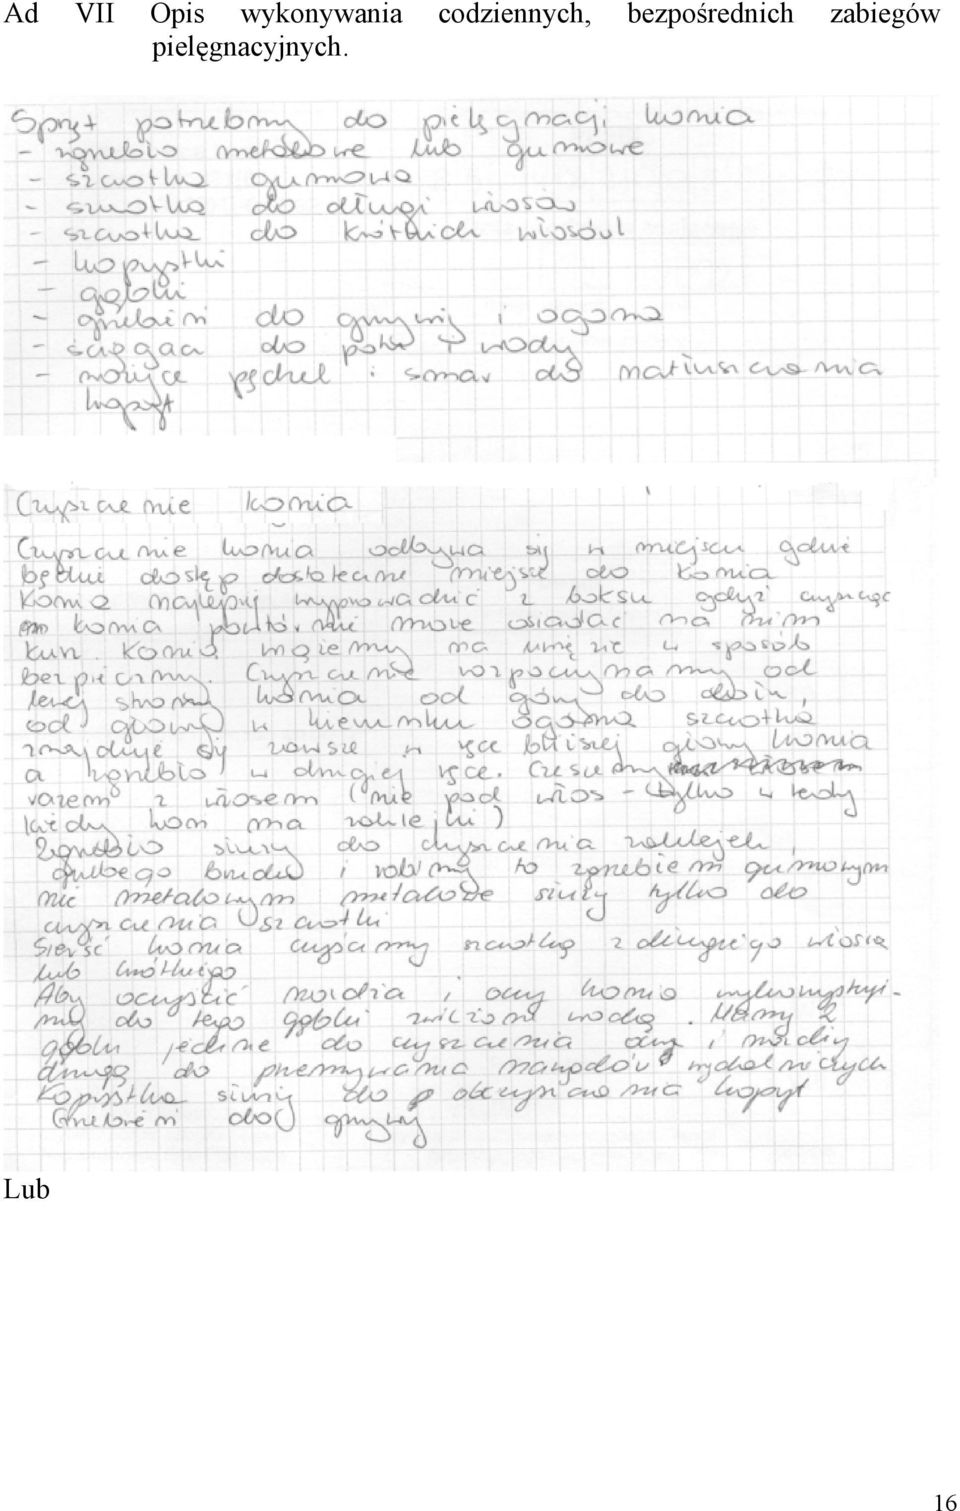 Ad VII Opis wykonywania codziennych, bezpośrednich zabiegów
pielęgnacyjnych.
Sprzęt potrzebny do pielęgnacji konia
- zgrzebło metalowe lub gumowe
- szczotka gumowa
- szczotka do długi włosów
- szczotka do krótkich włosów
- kopystki
- gąbki
- grzebień do grzywy i ogona
- ściągacz do potu i wody
- możyce pędzel i smar do natłuszczania
kopyt
Czyszczenie konia
Czyszczenie konia odbywa się w miejscu gdzie
będzie dostęp dostateczne miejsce do konia
Konia najlepiej wyprowadzić z boksu gdyż czyszcząc
konia powtórnie może osiadać na nim
kurz. Konia możemy na uwięzić w sposób
bezpieczny. Czyszczenie rozpoczynamy od
lewej strony konia od góry do dołu,
od głowy w kierunku ogona szczotka
znajduje się zawsze w ręce bliższej głowy konia
a zgrzebło w drugiej ręce. Czeszemy
razem z włosem (nie pod włos - tylko wtedy
kiedy koń ma zaklejki)
Zgrzebło służy do czyszczenia zaklejek,
grubego brudu i robimy to zgrzebłem gumowym
nie metalowym metalowe służy tylko do
czyszczenia szczotki
Sierść konia czyścimy szczotką z długiego włosia
lub krótkiego
Aby oczyścić nozdrza i oczy konia wykorzystuje-
my do tego gąbki zwilżone wodą. Mamy 2
gąbki jedne do czyszczenia oczu i nozdrzy
drugą do przemywania narządów wydalniczych
Kopystka służy do oczyszczania kopyt
Grzebień do grzywy
Lub
16